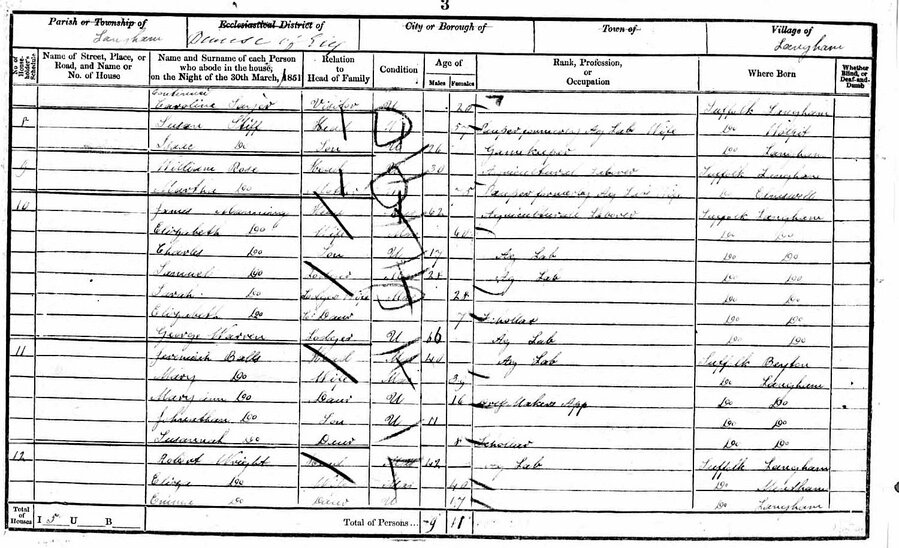 3
Parish or Township of Ecclesiastical District of City or Borough of Town of Village of
Langham Langham
No. of House-holder's Schedule Name of Street, Place, or Road, and Name or No. of House Name and Surname of each Person who abode in the house, on the Night of the 30th March, 1851 Relation to Head of Family Condition Age of Males Females Rank, Profession, or Occupation Where Born Whether Blind, or Deaf-and-Dumb
continued
Caroline Visitor U 20 Suffolk Langham
8 Susan Stiff Head 57 Pauper formerly Ag Lab Wife Do
Isaac Do Son U 26 Gamekeeper Do Langham
9 William Rose Head 30 Agricultural Laborer Suffolk Langham
Martha Do Mother Pauper formerly Ag Lab Wife Do Elmswell
10 James Manning Head 62 Agricultural Laborer Suffolk Langham
Elizabeth Do Wife Mar 60 Do Do
Charles Do Son U 17 Ag Lab Do Do
Samuel Do Lodger Mar 28 Ag Lab Do Do
Sarah Do Lodgers Wife Mar 28 Do Do
Elizabeth Do Daur 7 Scholar Do Do
George Warren Lodger U 66 Ag Lab Do Do
11 Jeremiah Balls Head Mar 40 Ag Lab Suffolk Beyton
Mary Do Wife Mar 39 Do Langham
Mary Ann Do Daur U 16 Makers App Do Do
Johnathan Do Son U 11 Do Do
Susannah Do Daur 8 Scholar Do Do
12 Robert Wright Head Mar 42 Ag Lab Suffolk Langham
Eliza Do Wife Mar 40 Do
Emma Do Daur U 17 Do Langham
Total of Houses I 5 U B Total of Persons... 9 11